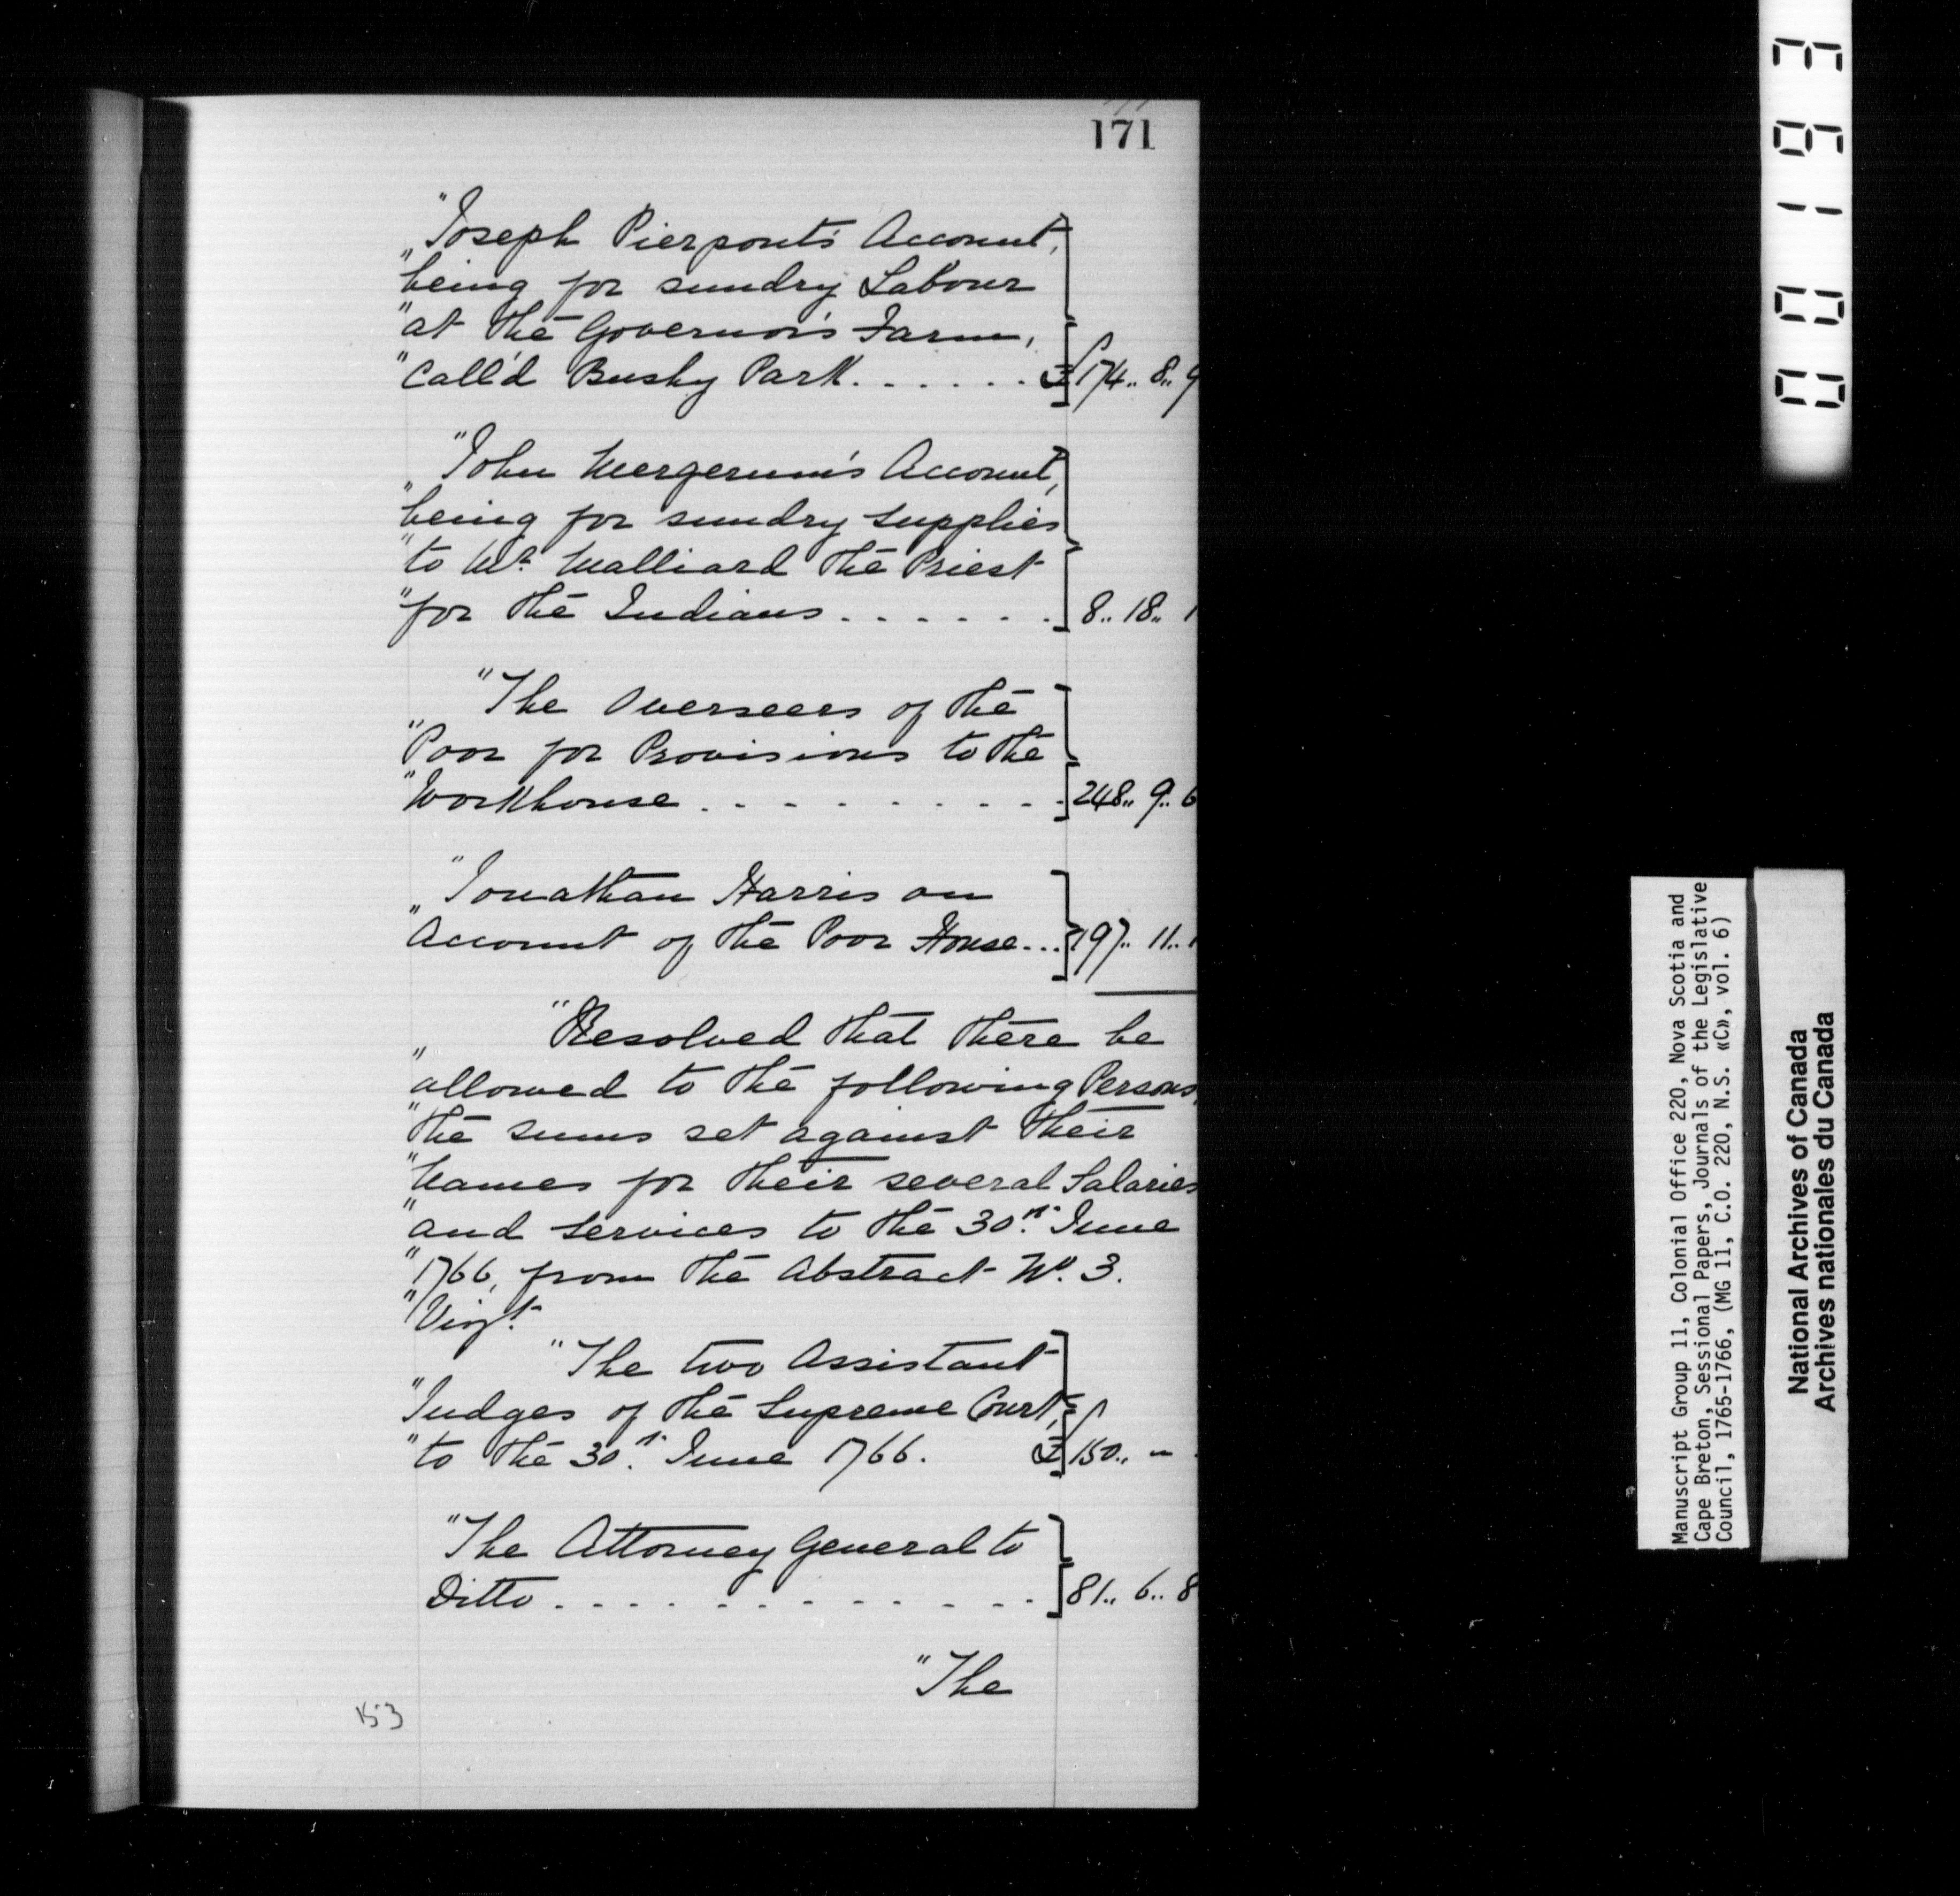 171
"Joseph Pierpont's Account,
"being for sundry Labour
"at the Governor's Farm,
"Call'd Bushy Park. . . . . . . £174.. 8.. 9
"John Mergerum's Account,
"being for sundry supplies
"to Mr. Malliard the Priest
"for the Indians . . . . . . . 8.. 18.. 1
"The Overseers of the
"Poor for Provisions to the
"Workhouse . . . . . . . . . 248.. 9.. 6
"Jonathan Harris on
"Account of the Poor House... 197.. 11.. 1
"Resolved that there be
"allowed to the following Persons,
"the sums set against their
"Names for their several Salaries
"and Services to the 30th. June
"1766, from the Abstract No. 3.
"Vizt.
"The two Assistant
"Judges of the Supreme Court,
"to the 30th. June 1766. £150.. -
"The Attorney General to
Ditto . . . . . . . . . . . . 81.. 6.. 8
"The
153
Manuscript Group 11, Colonial Office 220, Nova Scotia and
Cape Breton, Sessional Papers, Journals of the Legislative
Council, 1765-1766, (MG 11, C.O. 220, N.S. «C», vol. 6)
National Archives of Canada
Archives nationales du Canada